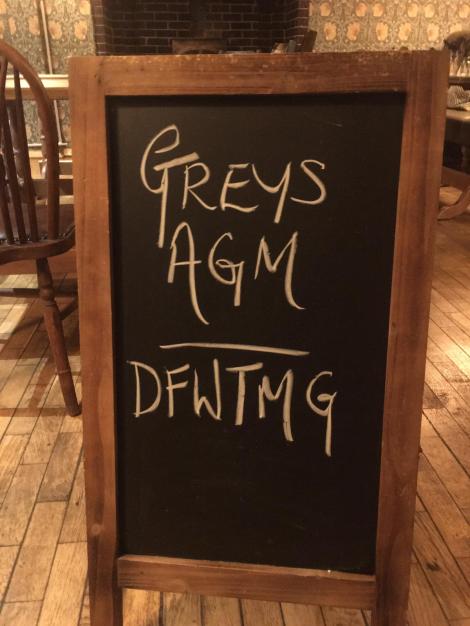 GREYS
AGM
DFWTMG